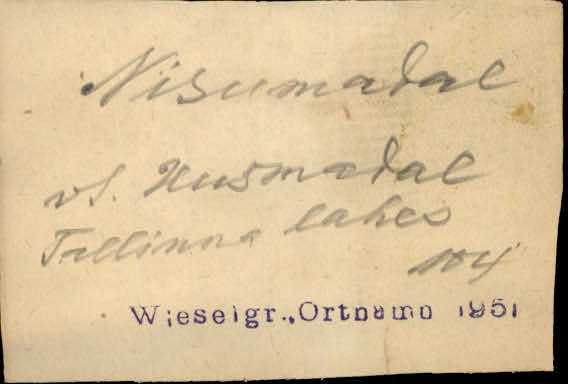 Nisumadal
vt. Uusmadal
Tallinna lahes
104
Wieselgr., Ortnamn 1951